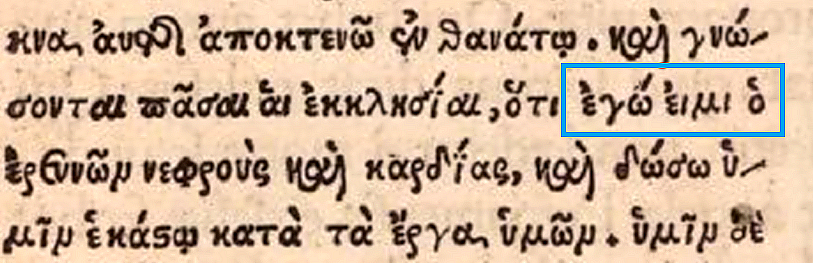 κνα, αὐτῆς ἀποκτενῶ ἐν θανάτῳ. καὶ γνώ-
σονται πᾶσαι ἁι ἐκκλησίαι, ὅτι ἐγώ ἐιμι ὁ
ἐρευνῶν νεφροὺς καὶ καρδίας, καὶ δώσω ὑ-
μῖν ἑκάστῳ κατὰ τὰ ἔργα, ὑμῶν. ὑμῖν δὲ